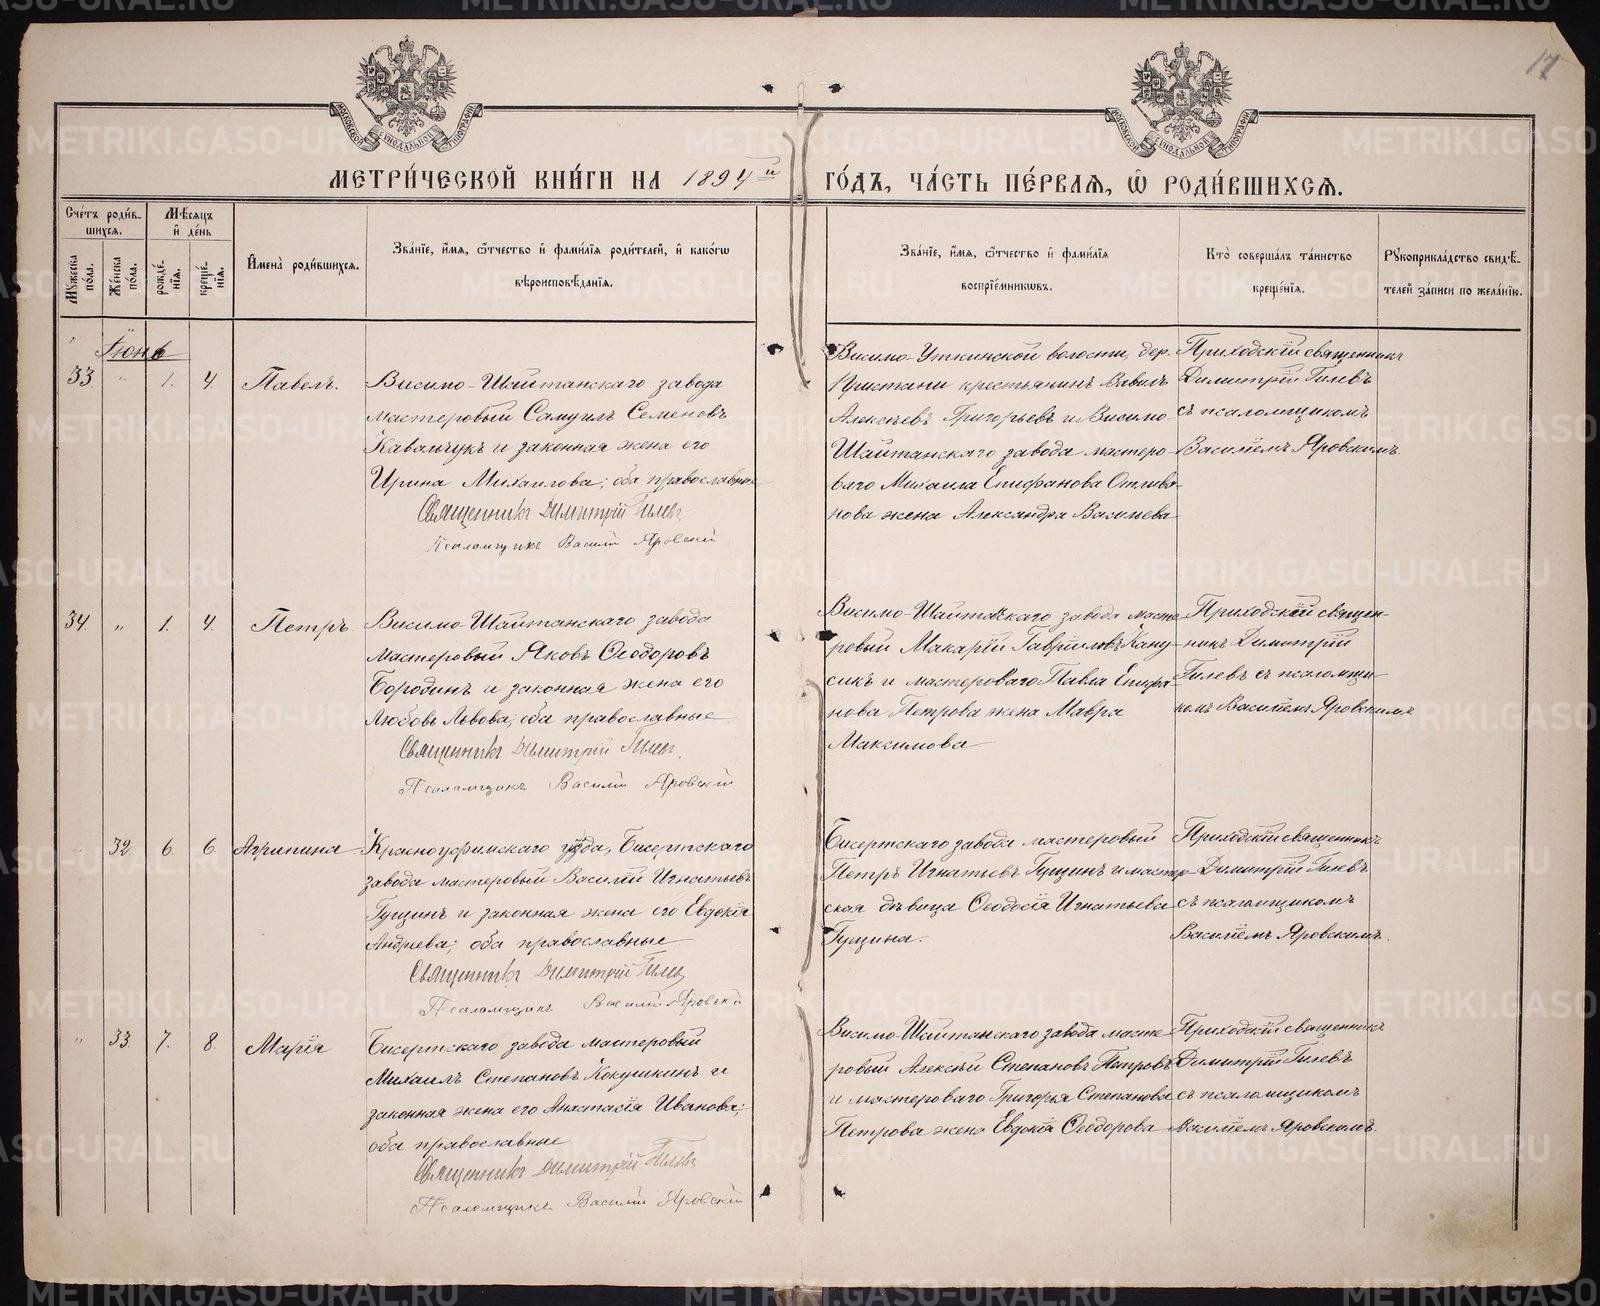 17
МОСКОВСКОЙ СѴНОДАЛЬНОЙ ТИПОГРАФІИ
МОСКОВСКОЙ СѴНОДАЛЬНОЙ ТИПОГРАФІИ
МЕТРИ́ЧЕСКОЙ КНИ́ГИ НА 1894й ГО́ДЪ, ЧА́СТЬ ПЕ́РВАѦ, Ѡ РОДИ́ВШИХСѦ.
Сче́тъ роди́в-
шихсѧ.
Мѣ́сѧцъ
и҆ де́нь
Мꙋ́жеска по́ла.
Же́нска по́ла.
рожде́-нїѧ.
креще́-нїѧ.
И҆мена̀ роди́вшихсѧ.
Зва́нїе, и҆́мѧ, ѻ҆́тчество и҆ фами́лїѧ роди́телей, и҆ како́гѡ
вѣроисповѣ́данїѧ.
Зва́нїе, и҆́мѧ, ѻ҆́тчество и҆ фами́лїѧ
воспрїе́мникѡвъ.
Кто̀ соверша́лъ та́инство
креще́нїѧ.
Рꙋкоприкла́дство свидѣ́-
телей за́писи по жела́нїю.
Іюнь
33 " 1. 4 Павелъ.
Висимо-Шайтанскаго завода
мастеровый Самуилъ Семеновъ
Кавальчукъ и законная жена его
Ирина Михаилова; оба православные
Священникъ Димитрій Гилев
Псаломщикъ Василій Яровскій
Висимо-Уткинской волости, дер.
Пристани крестьянинъ Вавилъ
Алексѣевъ Григорьевъ и Висимо-
Шайтанскаго завода мастеро-
ваго Михаила Епифанова Отлива-
нова жена Александра Васильева
Приходскій священникъ
Димитрій Гилевъ
съ псаломщикомъ
Василіемъ Яровскимъ.
34. " 1. 4. Петръ
Висимо-Шайтанскаго завода
мастеровый Яковъ Ѳеодоровъ
Бородинъ и законная жена его
Любовь Львова; оба православные
Священникъ Димитрій Гилев.
Псаломщикъ Василій Яровскій
Висимо-Шайтанскаго завода масте-
ровый Макарій Гавріиловъ Кану-
сикъ и мастероваго Павла Епифа-
нова Петрова жена Мавра
Максимова
Приходскій священ-
никъ Димитрій
Гилевъ съ псаломщи-
комъ Василіемъ Яровскимъ.
32. 6. 6. Агрипина
Красноуфимскаго уѣзда, Бисертскаго
завода мастеровый Василій Игнатьевъ
Гущинъ и законная жена его Евдокія
Андреева; оба православные
Священникъ Димитрій Гилев
Псаломщикъ Василій Яровскій
Бисертскаго завода мастеровый
Петръ Игнатьевъ Гущинъ и мастер-
ская дѣвица Ѳеодосія Игнатьева
Гущина.
Приходскій священникъ
Димитрій Гилевъ
съ псаломщикомъ
Василіемъ Яровскимъ.
" 33. 7. 8. Марія
Бисертскаго завода мастеровый
Михаилъ Степановъ Кокушкинъ и
законная жена его Анастасія Иванова;
оба православные
Священникъ Димитрій Гилев
Псаломщикъ Василій Яровскій
Висимо-Шайтанскаго завода масте-
ровый Алексѣй Степановъ Петровъ
и мастероваго Григорья Степанова
Петрова жена Евдокія Ѳеодорова
Приходскій священникъ
Димитрій Гилевъ
съ псаломщикомъ
Василіемъ Яровскимъ.
METRIKI.GASO-URAL.RU